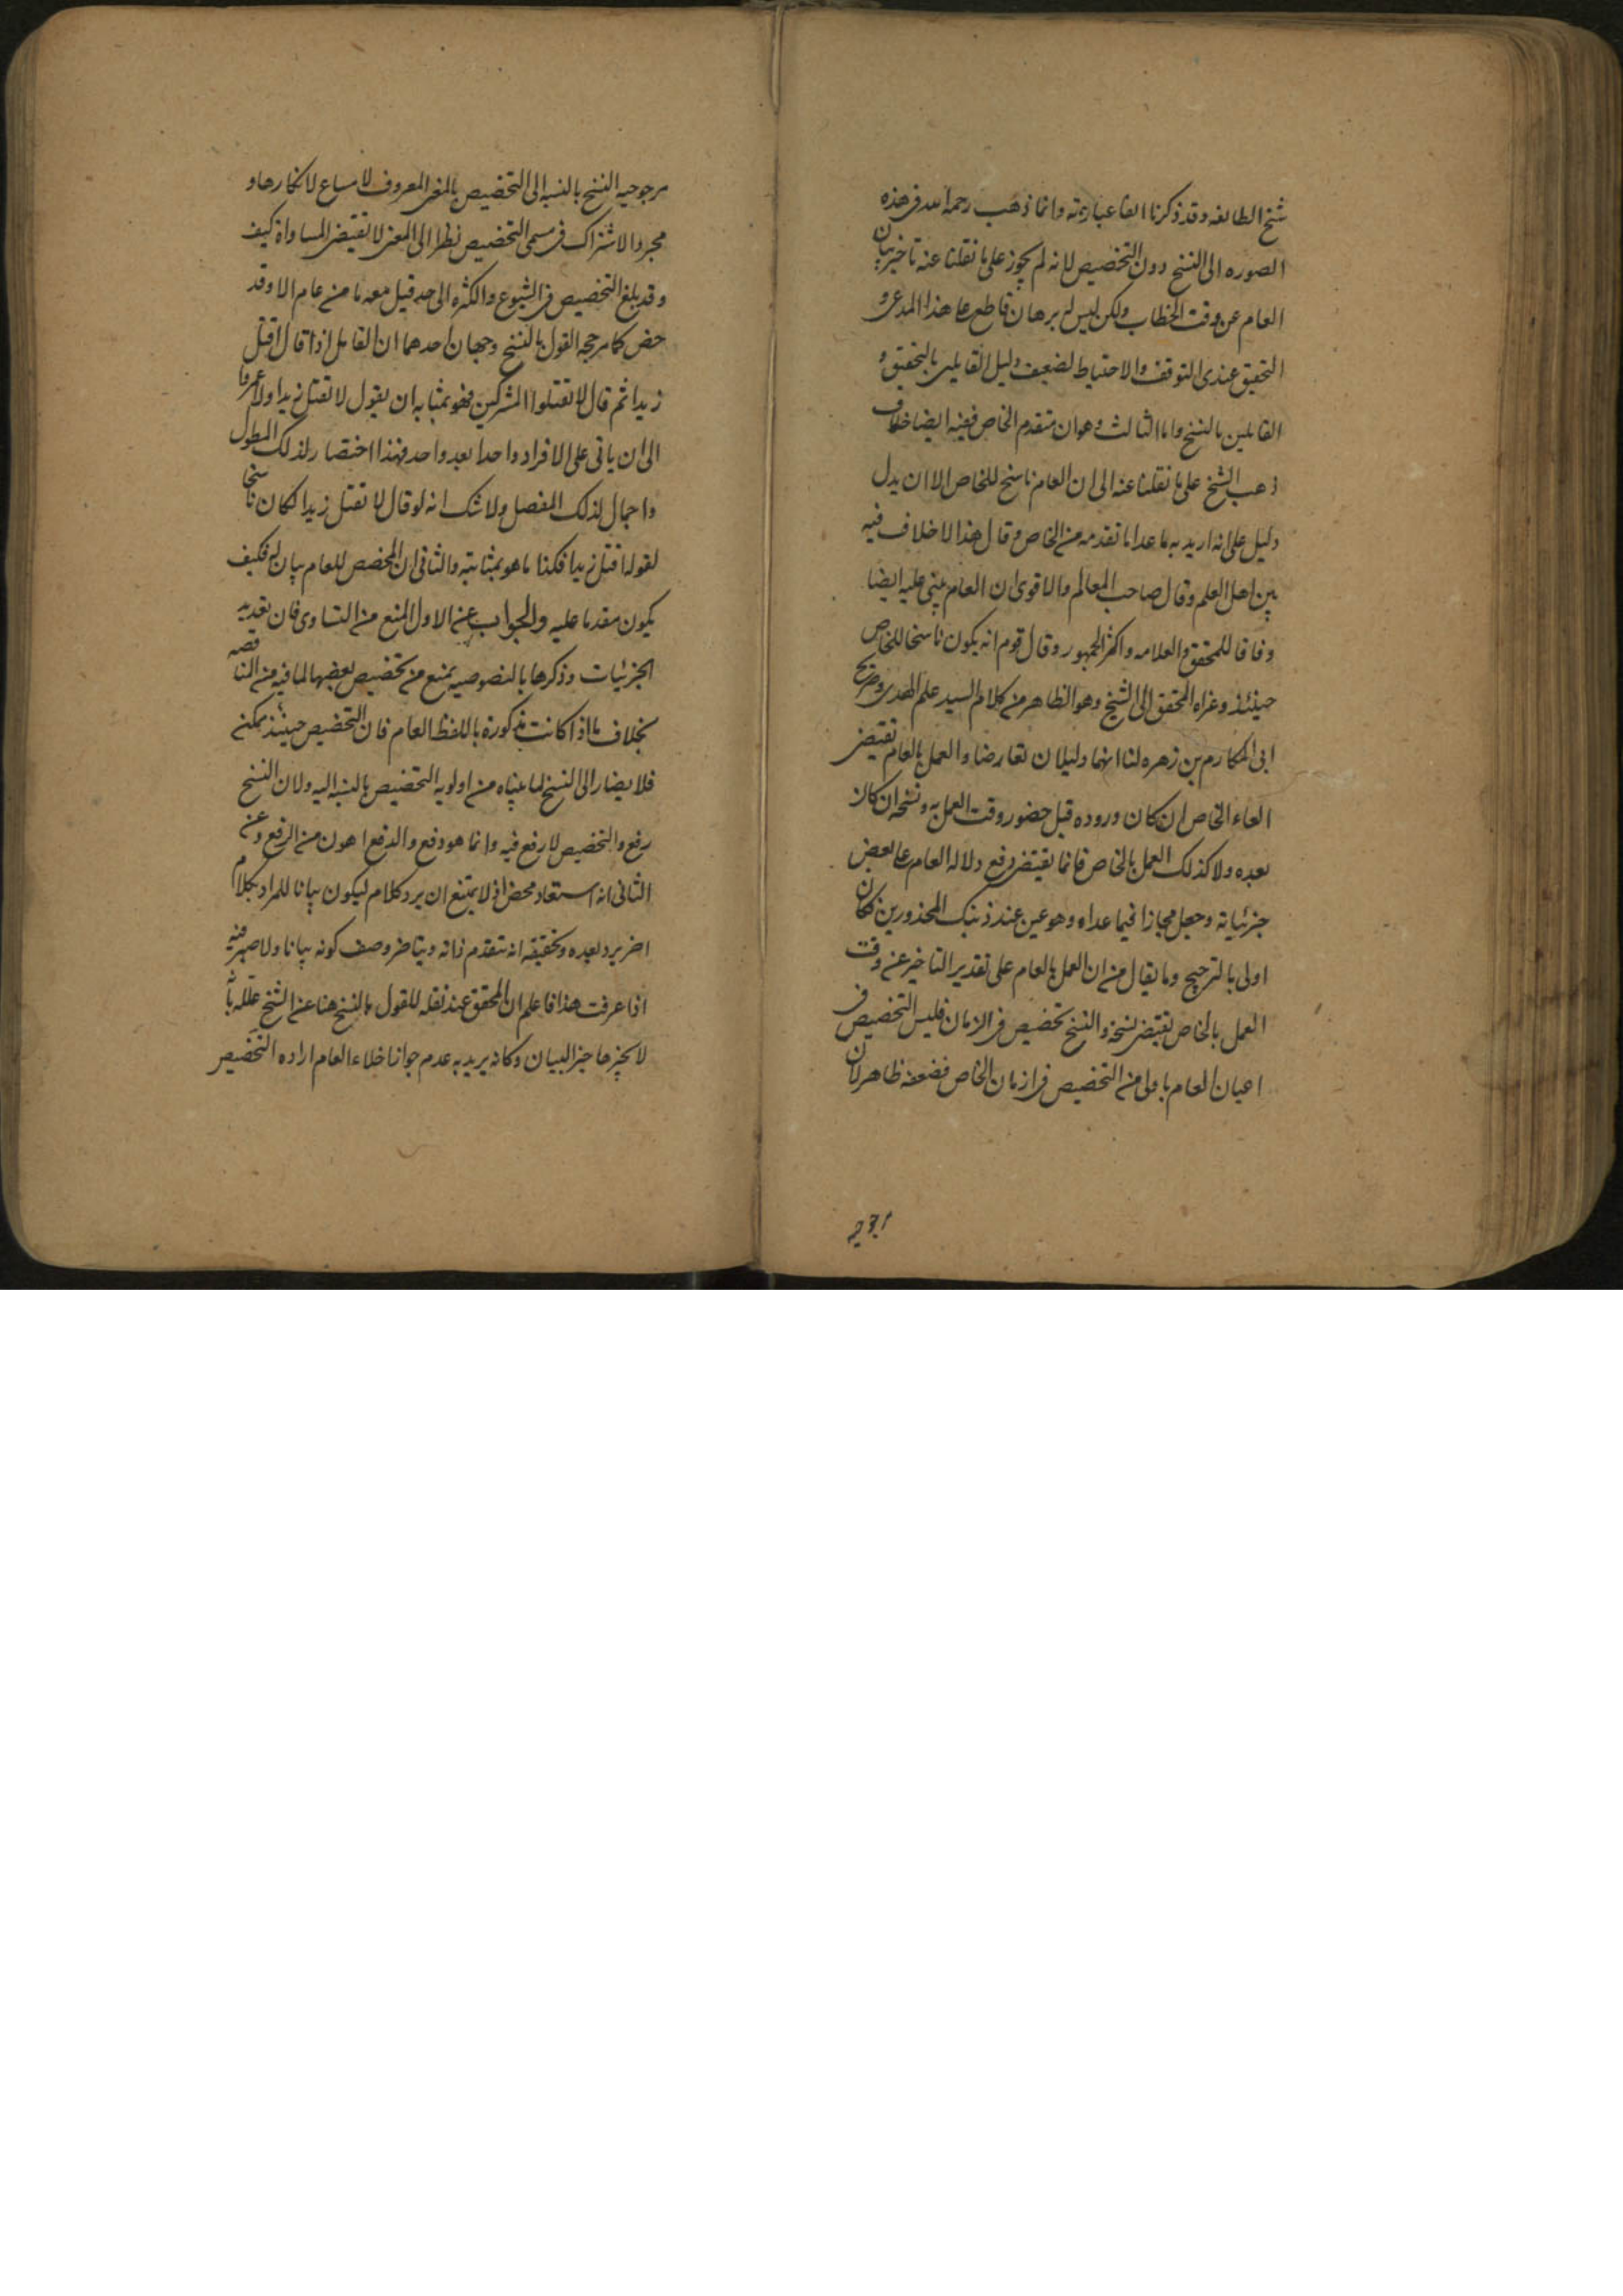 شيخ الطائفه وقد ذكرنا انفا عبارته وانما ذهب رحمه الله فى هذه
الصوره الى النسخ دون التخصيص لانه لم يجوز على ما نقلنا عنه تاخير بيان
العام عن وقت الخطاب ولكن ليس له برهان قاطع على هذا المدعى و
التحقيق عندى التوقف والاحتياط لضعف دليل القايلين بالتحقيق و
القايلين بالنسخ واما الثالث وهوان متقدم الخاص ففيه ايضا خلاف
ذهب الشيخ على ما نقلنا عنه الى ان العام ناسخ للخاص الا ان يدل
دليل على انه اريد به ما عدا ما تقدمه من الخاص وقال هذا لا خلاف فيه
بين اهل العلم وقال صاحب المعالم والاقوى ان العام يبنى عليه ايضا
وفاقا للمحقق والعلامه واكثر الجمهور وقال قوم انه يكون ناسخا للخاص
حينئذ وعزاه المحقق الى الشيخ وهو الظاهر من كلام السيد علم الهدى وصريح
ابى المكارم بن زهره لنا انهما دليلان تعارضا والعمل بالعام يقتضى
الغاء الخاص ان كان وروده قبل حضور وقت العمل به ونسخه ان كان
بعده ولا كذلك العمل بالخاص فانما يقتضى رفع دلاله العام على بعض
جزئياته وجعل مجازا فيما عداه وهو عين عند ذينك المحذورين فكان
اولى بالترجيح وما يقال من ان العمل بالعام على تقدير التاخير عن وقت
العمل بالخاص يقتضى نسخه والنسخ تخصيص فى الازمان فليس التخصيص فى
اعيان العام باولى من التخصيص فى ازمان الخاص فضعفه ظاهر لان
مرجوحيه النسخ بالنسبه الى التخصيص بالمعنى المعروف لا مساغ لانكارها و
مجرد الاشتراك فى مسمى التخصيص نظرا الى المعنى لا تقتضى المساواة كيف
وقد بلغ التخصيص فى الشيوع والكثره الى حد قيل معه ما من عام الا وقد
خص كما مر حجه القول بالنسخ وجهان احدهما ان القايل اذا قال اقتل
زيدا ثم قال لا تقتلوا المشركين فهو بمثابه ان يقول لا تقتل زيدا ولا عمروا
الى ان ياتى على الافراد واحدا بعد واحد فهذا اختصار لذلك المطول
واجمال لذلك المفصل ولا شك انه لو قال لا تقتل زيدا لكان ناسخا
لقوله اقتل زيدا فكذا ما هو بمثابته والثانى ان المخصص للعام بيان له فكيف
يكون مقدما عليه والجواب عن الاول المنع من التساوى فان تعديد
الجزئيات وذكرها بالنصوصيه يمنع من تخصيص بعضها لما فيه من المناقضه
بخلاف ما اذا كانت مذكورة باللفظ العام فان التخصيص حينئذ يمكن
فلا يصار الى النسخ لما بيناه من اولويه التخصيص بالنسبه اليه ولان النسخ
رفع والتخصيص لا رفع فيه وانما هو دفع والدفع اهون من الرفع وعن
الثانى انه استبعاد محض اذ لا يمتنع ان يرد كلام ليكون بيانا للمراد بكلام
اخر يرد بعده وتحقيقه انه يتقدم ذاته ويتاخر وصف كونه بيانا ولا ضير فيه
اذا عرفت هذا فاعلم ان المحقق عند نقله للقول بالنسخ هنا عن الشيخ علله بانه
لا يجيز تاخير البيان وكانه يريد به عدم جواز اخلاء العام اراده التخصيص